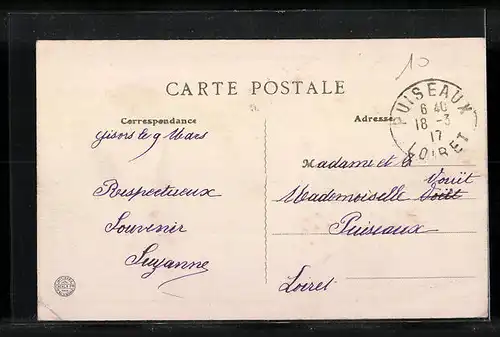 10
CARTE POSTALE
PUISEAUX
6 40
18 -3
17
LOIRET
Correspondance
Adresse
Gisors le 9 Mars
Madame et
Vouët
Respectueux
Mademoiselle
Souvenir
Puiseaux
Suzanne
Loiret